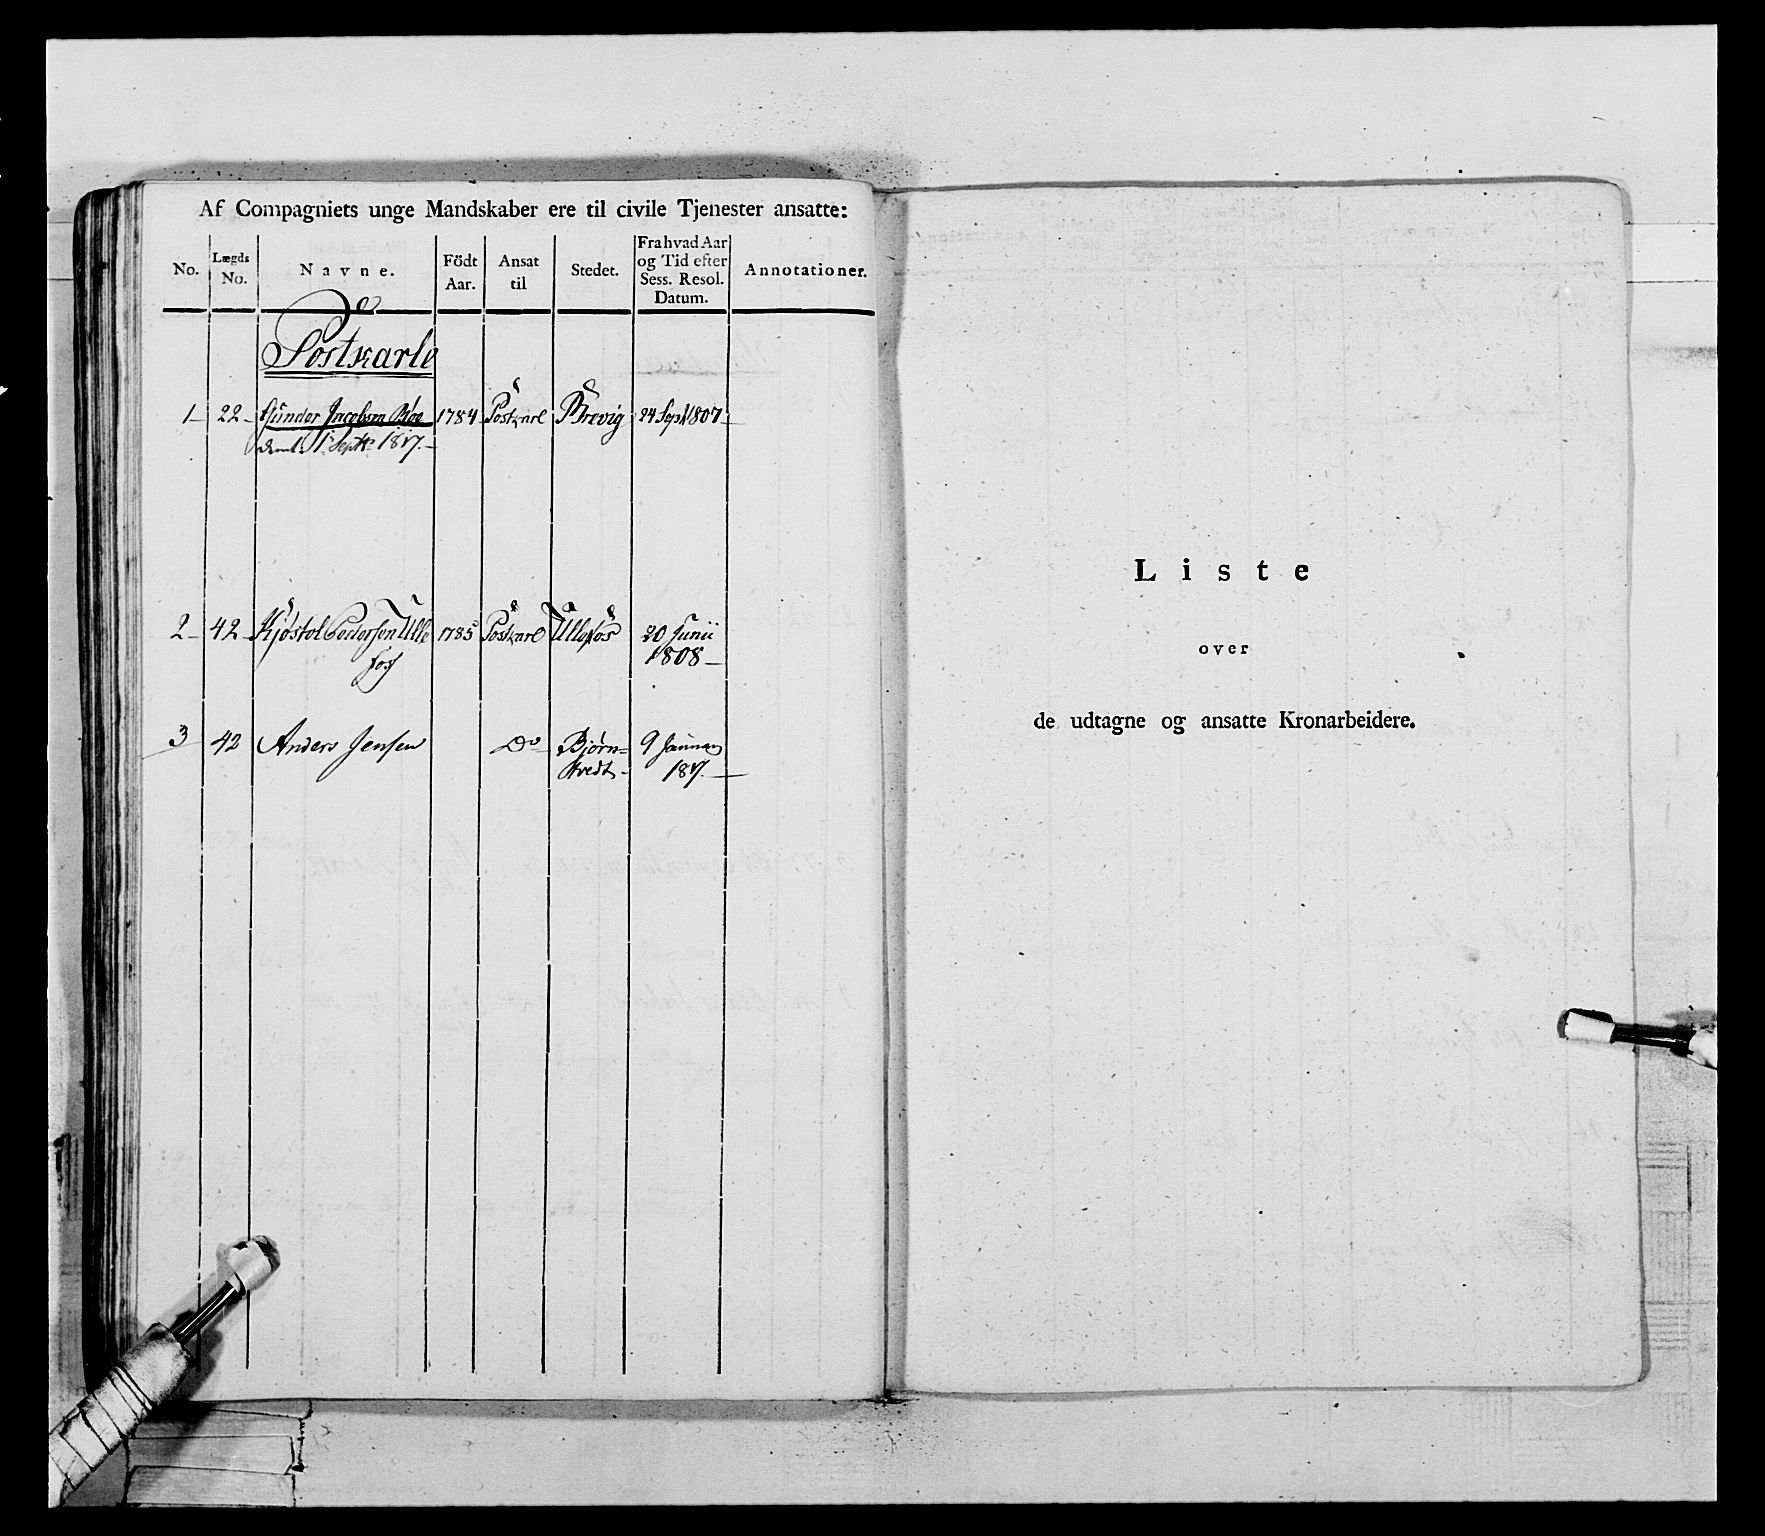 Af Compagniets unge Mandskaber ere til civile Tjenester ansatte:
No. Lægds No. Navne. Födt Aar. Ansat til Stedet. Fra hvad Aar og Tid efter Sess. Resol. Datum. Annotationer.
Postkarle
1 22 Gunder Jacobsen Böe 1784 Postkarl Brevig 24 Sept 1807
1 Septbr
2 42 Kjöstol Pedersen Ulle 1785 Postkarl Ullefos 20 Junii
fos 1808
3 42 Anders Jensen Do Bjørn= 9 Januar
stvedt
Liste
over
de udtagne og ansatte Kronarbeidere.